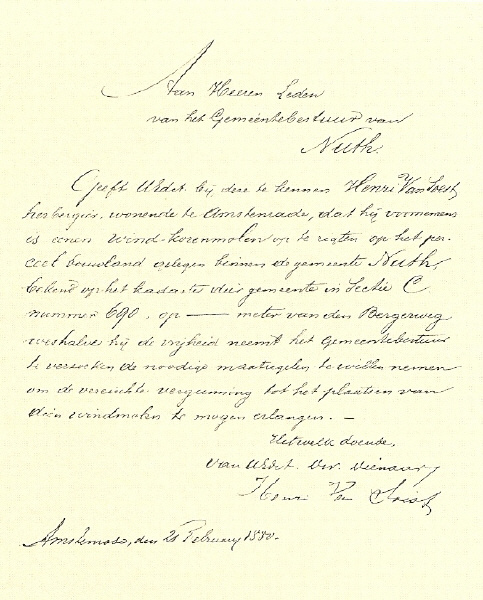 Aan Heeren Leden
van het Gemeentebestuur van
Nuth.
Geeft UEdt. bij deze te kennen Henri Van Soest
herbergier, wonende te Amstenrade, dat hij voornemens
is eenen wind-korenmolen op te regten op het per-
ceel bouwland gelegen binnen de gemeente Nuth,
bekend op het kadaster dier gemeente in Sectie C
nummer 690, op — meter van den Bergerweg
weshalve hij de vrijheid neemt het Gemeentebestuur
te verzoeken de noodige maatregelen te willen nemen
om de vereischte vergunning tot het plaatsen van
dien windmolen te mogen erlangen. —
Hetwelk doende,
van UEdt. Dw. Dienaar
Henri Van Soest
Amstenrade, den 28 February 1880.